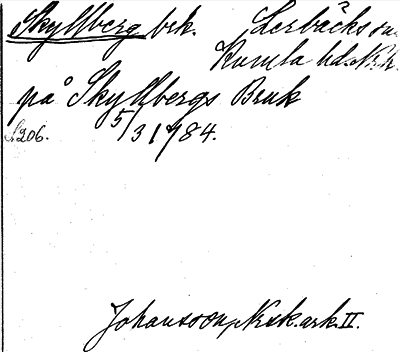 Skyllberg brk. Lerbäcks sn.
Kumla hd. Nrk.
på Skyllbergs Bruk
S. 206. 5/3 1784.
Johansson, Nrsk. ark. II.